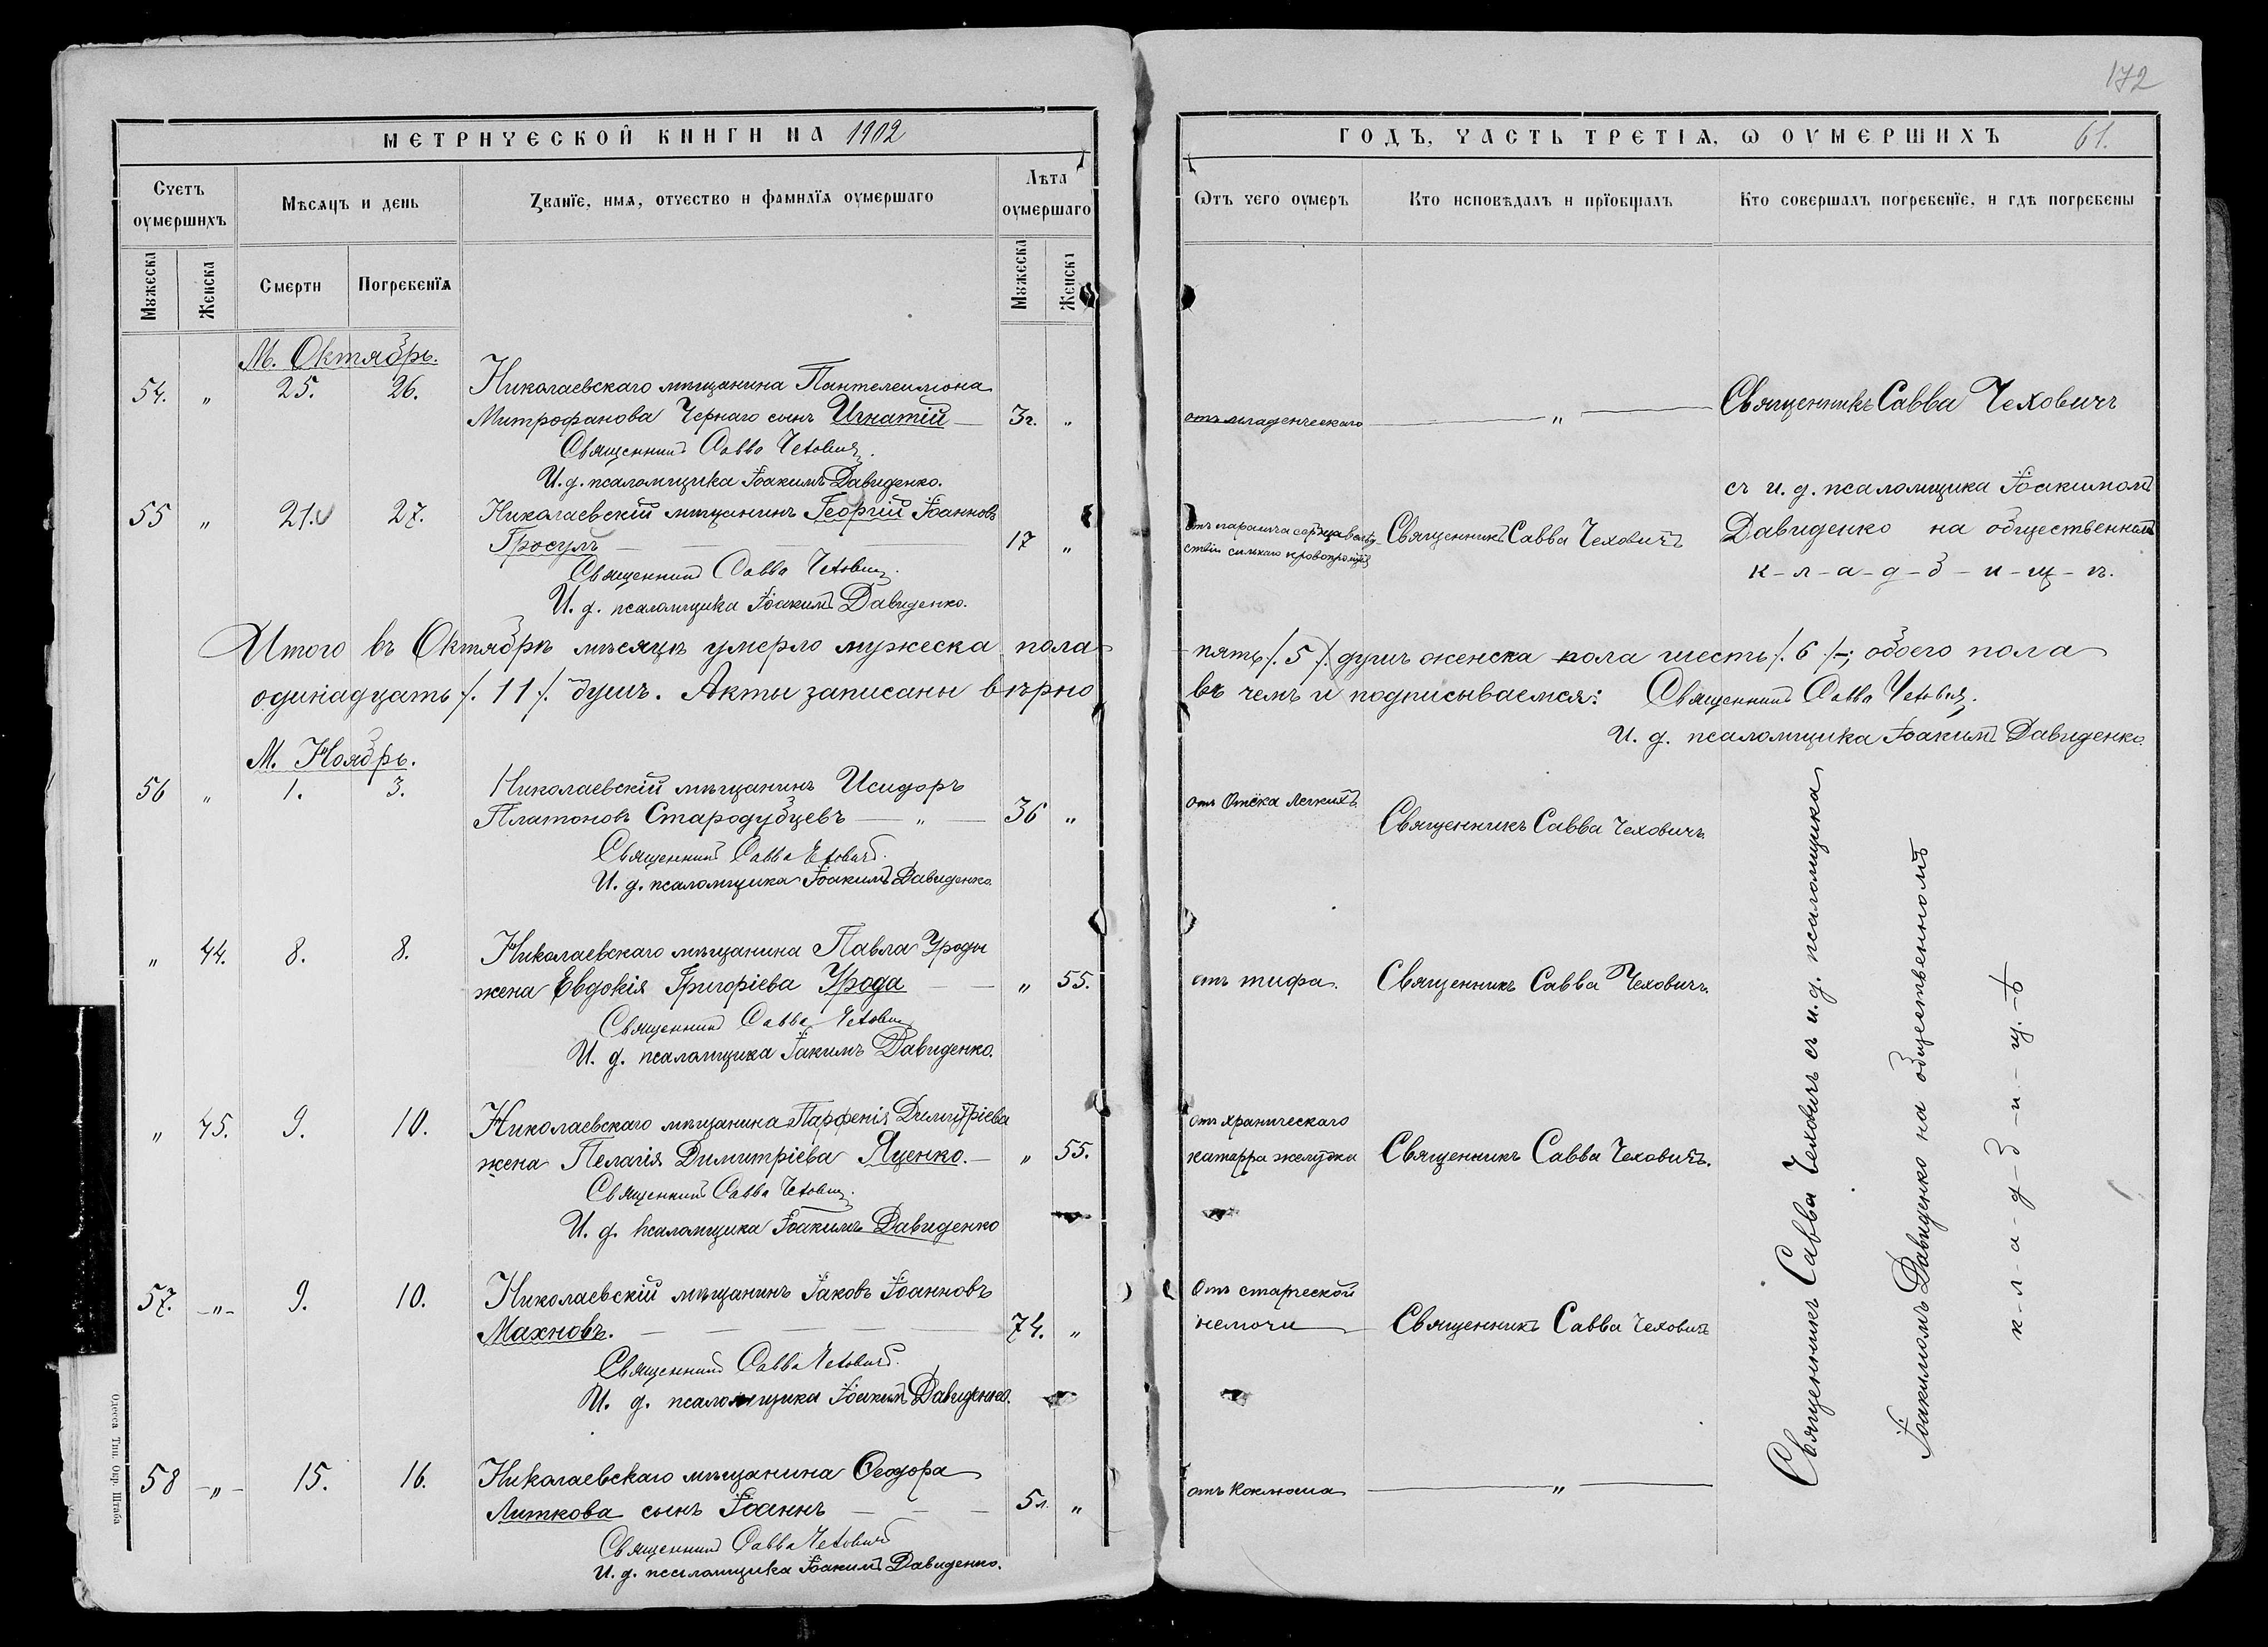 172
МЕТРИЧЕСКОЙ КНИГИ НА 1902
ГОДЪ, ЧАСТЬ ТРЕТІѦ, Ѡ ОУМЕРШИХЪ 61.
Счетъ оумершихъ
Мѣсяцъ и день
Званїе, имѧ, отчество и фамилїѧ оумершаго
Лѣта оумершаго
Ѿтъ чего оумеръ
Кто исповѣдалъ и прїобщалъ
Кто совершалъ погребенїе, и гдѣ погребены
Мужеска
Женска
Смерти
Погребенїѧ
Мужеска
Женска
М. Октябрь.
54. „ 25. 26. Николаевскаго мѣщанина Пантелеимона
Митрофанова Чернаго сынъ Игнатій — 3г. „
отъ младенческаго — „ — Священникъ Савва Чеховичъ
Священникъ Савва Чеховичъ.
И. д. псаломщика Іоакимъ Давиденко.
съ и. д. псаломщика Іоакимомъ
55 „ 21. 27. Николаевскій мѣщанинъ Георгій Іоанновъ
Гросулъ — 17 „
отъ паралича сердца
сильнаго
Священникъ Савва Чеховичъ
Давиденко на общественномъ
к-л-а-д-б-и-щ-ѣ.
Священникъ Савва Чеховичъ.
И. д. псаломщика Іоакимъ Давиденко.
Итого въ Октябрѣ мѣсяцѣ умерло мужеска пола
пять /.5/. душъ женска пола шесть /.6/.-; обоего пола
одинадцать /.11/. душъ. Акты записаны вѣрно
въ чемъ и подписываемся: Священникъ Савва Чеховичъ.
И. д. псаломщика Іоакимъ Давиденко.
М. Ноябрь.
56 „ 1. 3. Николаевскій мѣщанинъ Исидоръ
Платоновъ Стародубцевъ — „ — 36 „
отъ Отёка легкихъ
Священникъ Савва Чеховичъ.
Священникъ Савва Чеховичъ.
И. д. псаломщика Іоакимъ Давиденко.
„ 44. 8. 8. Николаевскаго мѣщанина Павла Уроды
жена Евдокія Григоріева Урода — „ 55.
отъ тифа. Священникъ Савва Чеховичъ.
Священникъ Савва Чеховичъ
И. д. псаломщика Іакимъ Давиденко.
„ 45. 9. 10. Николаевскаго мѣщанина Парфенія Димитріева
жена Пелагія Димитріева Яценко. — „ 55.
отъ хроническаго
катарра желудка Священникъ Савва Чеховичъ.
Священникъ Савва Чеховичъ.
И. д. псаломщика Іоакимъ Давиденко
57. -„- 9. 10. Николаевскій мѣщанинъ Іаковъ Іоанновъ
Махновъ. — 74. „
Отъ старческой
немочи Священникъ Савва Чеховичъ
Священникъ Савва Чеховичъ.
И. д. псаломщика Іоакимъ Давиденко.
58 -„- 15. 16. Николаевскаго мѣщанина Ѳеодора
Литкова сынъ Іоаннъ — 5л. „
отъ Коклюша — „ —
Священникъ Савва Чеховичъ
И. д. псаломщика Іоакимъ Давиденко.
Священникъ Савва Чеховичъ съ и. д. псаломщика
Іоакимомъ Давиденко на общественномъ
к-л-а-д-б-и-щ-ѣ
Одесса Тип. Окр. Штаба